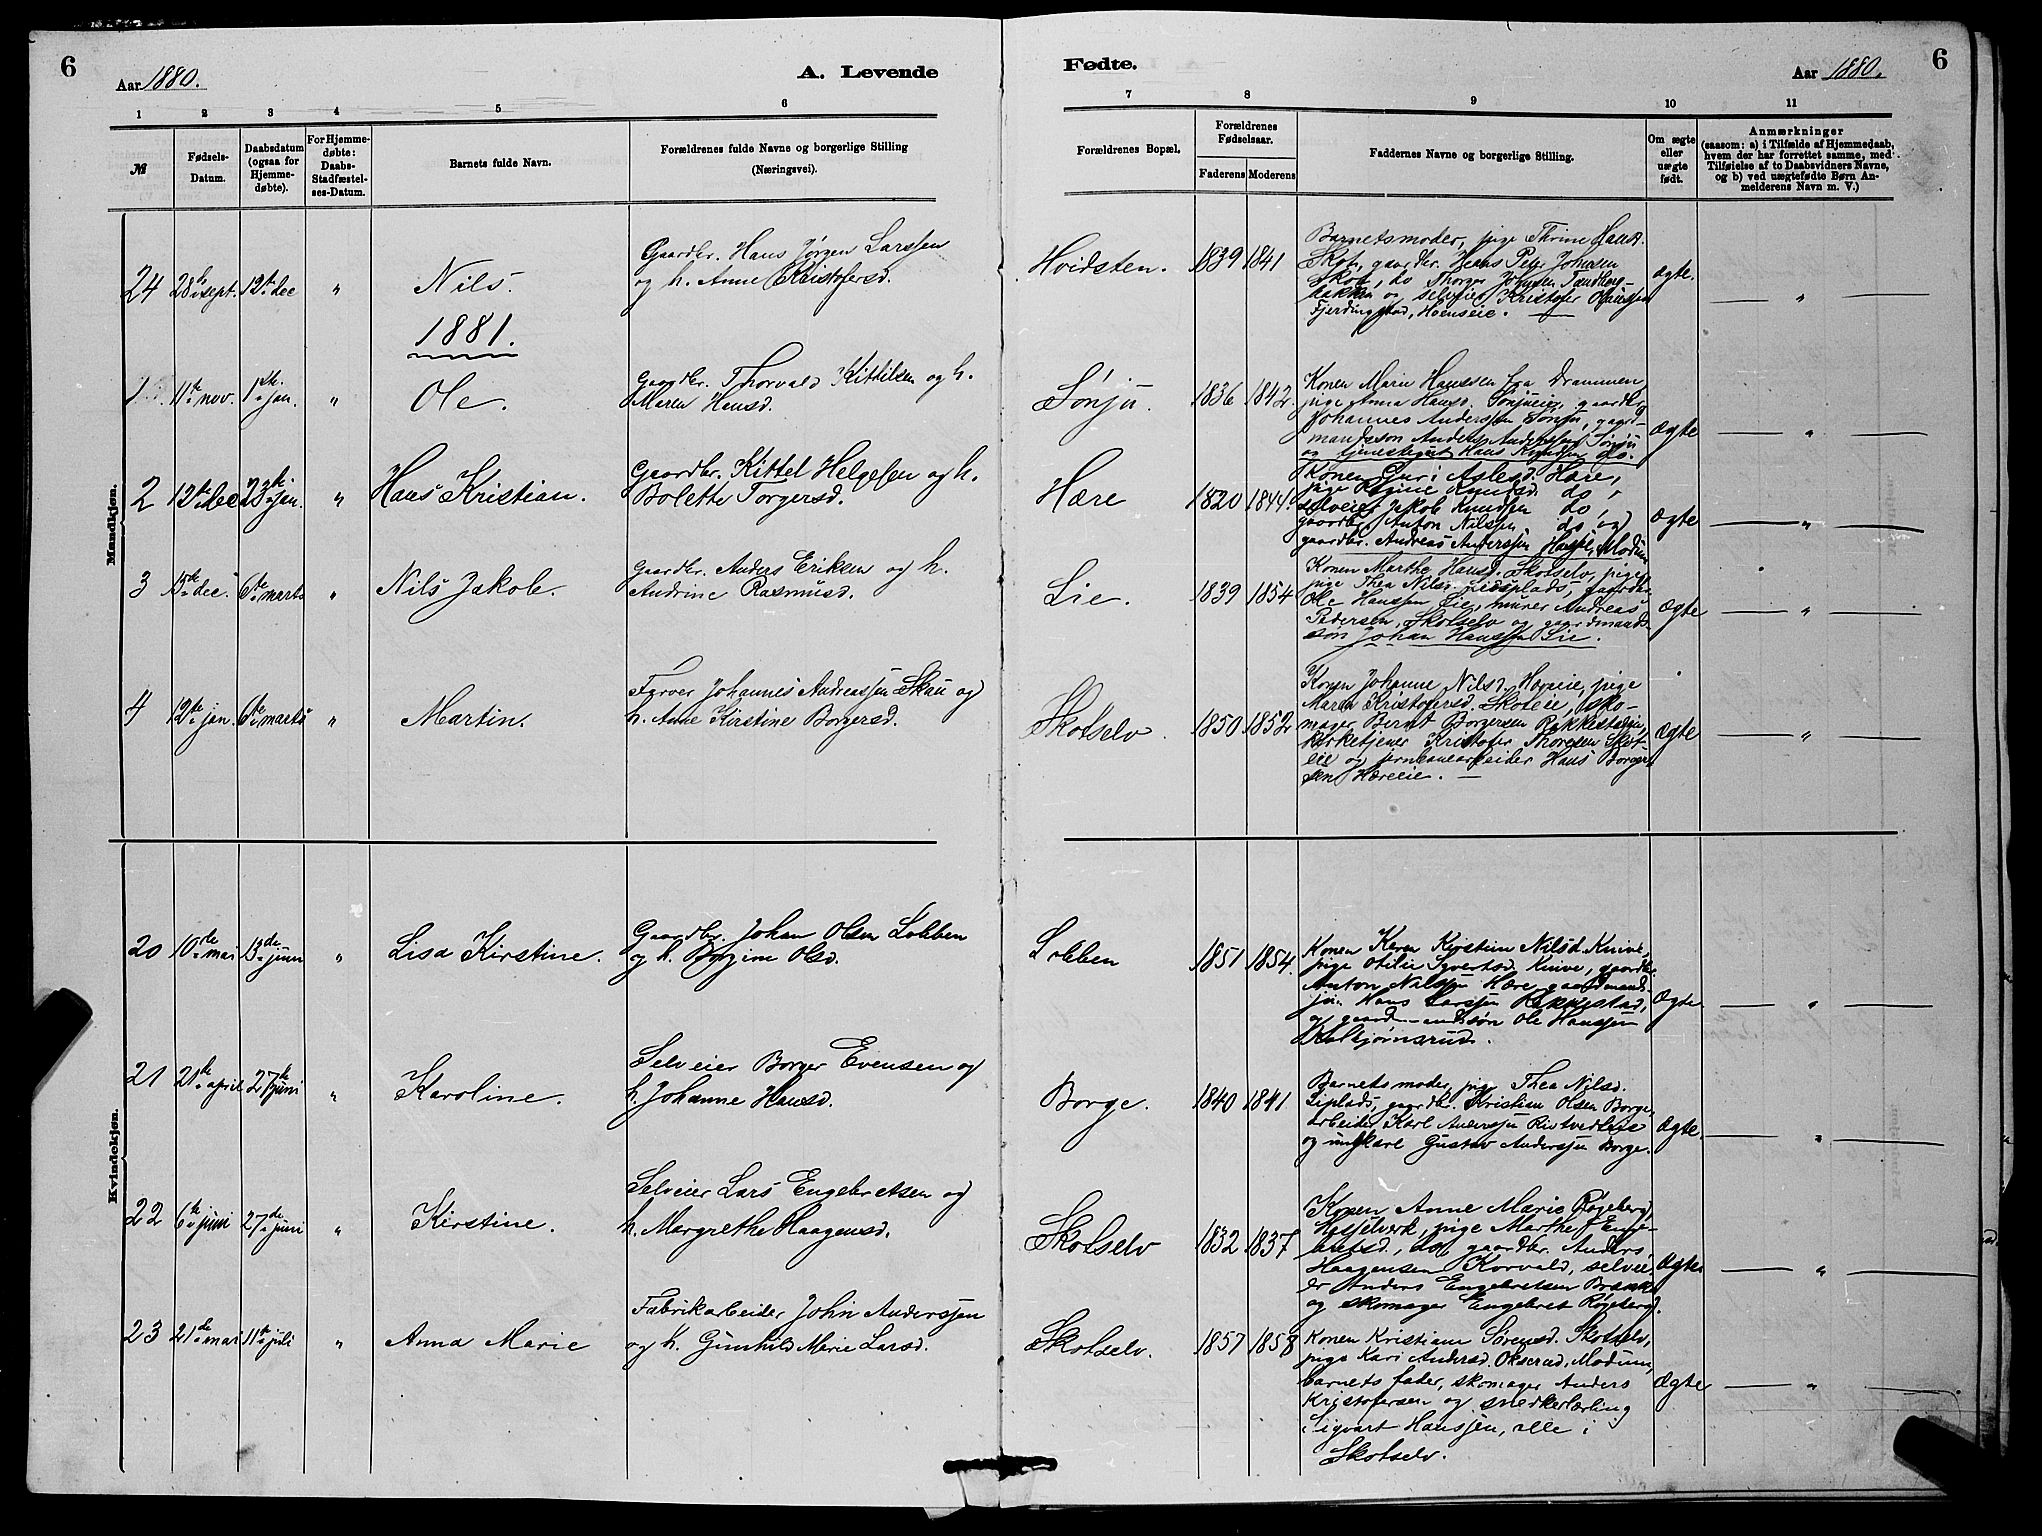 6
Aar 1880.
A. Levende
Fødte.
Aar 1880.
6
1 2 3 4 5 6 7 8 9 10 11
№
Fødsels-
Datum.
Daabsdatum
(ogsaa for
Hjemme-
døbte).
For Hjemme-
døbte:
Daabs-
Stadfæstel-
ses-Datum.
Barnets fulde Navn.
Forældrenes fulde Navne og borgerlige Stilling
(Næringsvei).
Forældrenes Bopæl.
Forældrenes
Fødselsaar.
Faderens Moderens
Faddernes Navne og borgerlige Stilling.
Om ægte
eller
uægte
født.
Anmærkninger
(saasom: a) i Tilfælde af Hjemmedaab,
hvem der har forrettet samme, med
Tilføielse af to Daabsvidners Navne,
og b) ved uægtefødte Børn An-
melderens Navn m. V.)
Mandkjøn.
24 28de sept. 12te dec „ Nils.
Gaardbr. Hans Jørgen Larssen
og h. Anne Kristofersd.
Hvidsten. 1839 1841
Barnets moder, pige Thrine Hansd.
Skot, gaardbr. Hans Peter Johnsen
Skot, do Thorger Johnsen Tandberg-
bakken og selveier Kristofer
Fjerdingstad, Hoenseie.
ægte. „
1881.
1 11te nov. 1ste jan. „ Ole.
Gaardbr. Thorvald Kittilsen og h.
Maren Hansd.
Sønju. 1836 1842.
Konen Marie Hanssen fra Drammen,
pige Anna Hansd. Sønjueie, gaardbr.
Johannes Anderssen Sønju, gaard-
mandssøn Anders Anderssen Sønju
og tjenestegut Hans do.
Ægte „
2 12te dec 23de jan. „ Hans Kristian.
Gaardbr. Kittel Helgesen og h.
Bolette Torgersd.
Hære 1820 1844.
Konen Guri Aslesd. Hære,
pige Knudsd. do,
selveier Jakob Knudsen do,
gaardbr. Anton Nilssen do og
gaardbr. Andreas Anderssen Modum
Ægte „
3 15te dec. 6te marts „ Nils Jakob.
Gaardbr. Anders Eriksen og h.
Andrine Rasmusd.
Lie. 1839 1854
Konen Marthe Hansd. Skotselv, pige
pige Thea Nilsd. Lieplads, gaardbr.
Ole Hanssen Lie, murer Andreas
Pedersen, Skotselv og gaardmands-
søn Johan Hanssen Lie.
Ægte „
4 12te jan. 6te marts „ Martin.
Farver Johannes Andreassen Skau og
h. Anne Kirstine Borgersd.
Skotselv. 1850 1852
Konen Johanne Nilsd. Hageie, pige
Maren Kristofersd. Skoteie, sko-
mager Bernt Borgersen Rakkestadeie,
kirketjener Kristofer Thoresen Skot-
eie og jernbanearbeider Hans Borger-
sen Hæreeie.
Ægte „
Kvindekjøn.
20 10de mai 13de juni „ Lisa Kirstine.
Gaardbr. Johan Olsen Lobben
og h. Borgine Olsd.
Lobben 1851 1854.
Konen Karen Kirstine Nilsd. Knive,
pige Otilie Syvertsd. Knive, gaardbr.
Anton Nilssen Hære, gaardmands-
søn Hans Larssen Rakkestad,
og gaardmandssøn Ole Hanssen
Kolbjørnsrud.
Ægte „
21 21de april 27de juni „ Karoline.
Selveier Borger Evensen og
h. Johanne Hansd.
Borge. 1840 1841.
Barnets moder, pige Thea Nilsd.
Lieplads, gaardbr. Kristian Olsen Borge,
arbeider Karl Anderssen
og ungkarl Gustav Anderssen Borge.
Ægte. „
22 6te juni 27de juni „ Kirstine.
Selveier Lars Engebretsen og
h. Margrethe Haagensd.
Skotselv 1832 1837
Konen Anne Marie Røgeberg,
Hasselverk, pige Marthe Enge-
bretsd., do, gaardbr. Anders
Haagensen Korvald, selvei-
er Anders Engebretsen
og skomager Engebret Røgeberg.
Ægte „
23 21de mai 11te juli „ Anna Marie
Fabrikarbeider John Anderssen
og h. Gunhild Marie Larsd.
Skotselv. 1857 1858
Konen Kristiane Sørensd. Skotselv,
pige Kari Andersd. Okserud, Modum,
barnets fader, skomager Anders
Kristofersen og snedkerlærling
Sigvart Hanssen, alle i
Skotselv.
Ægte „